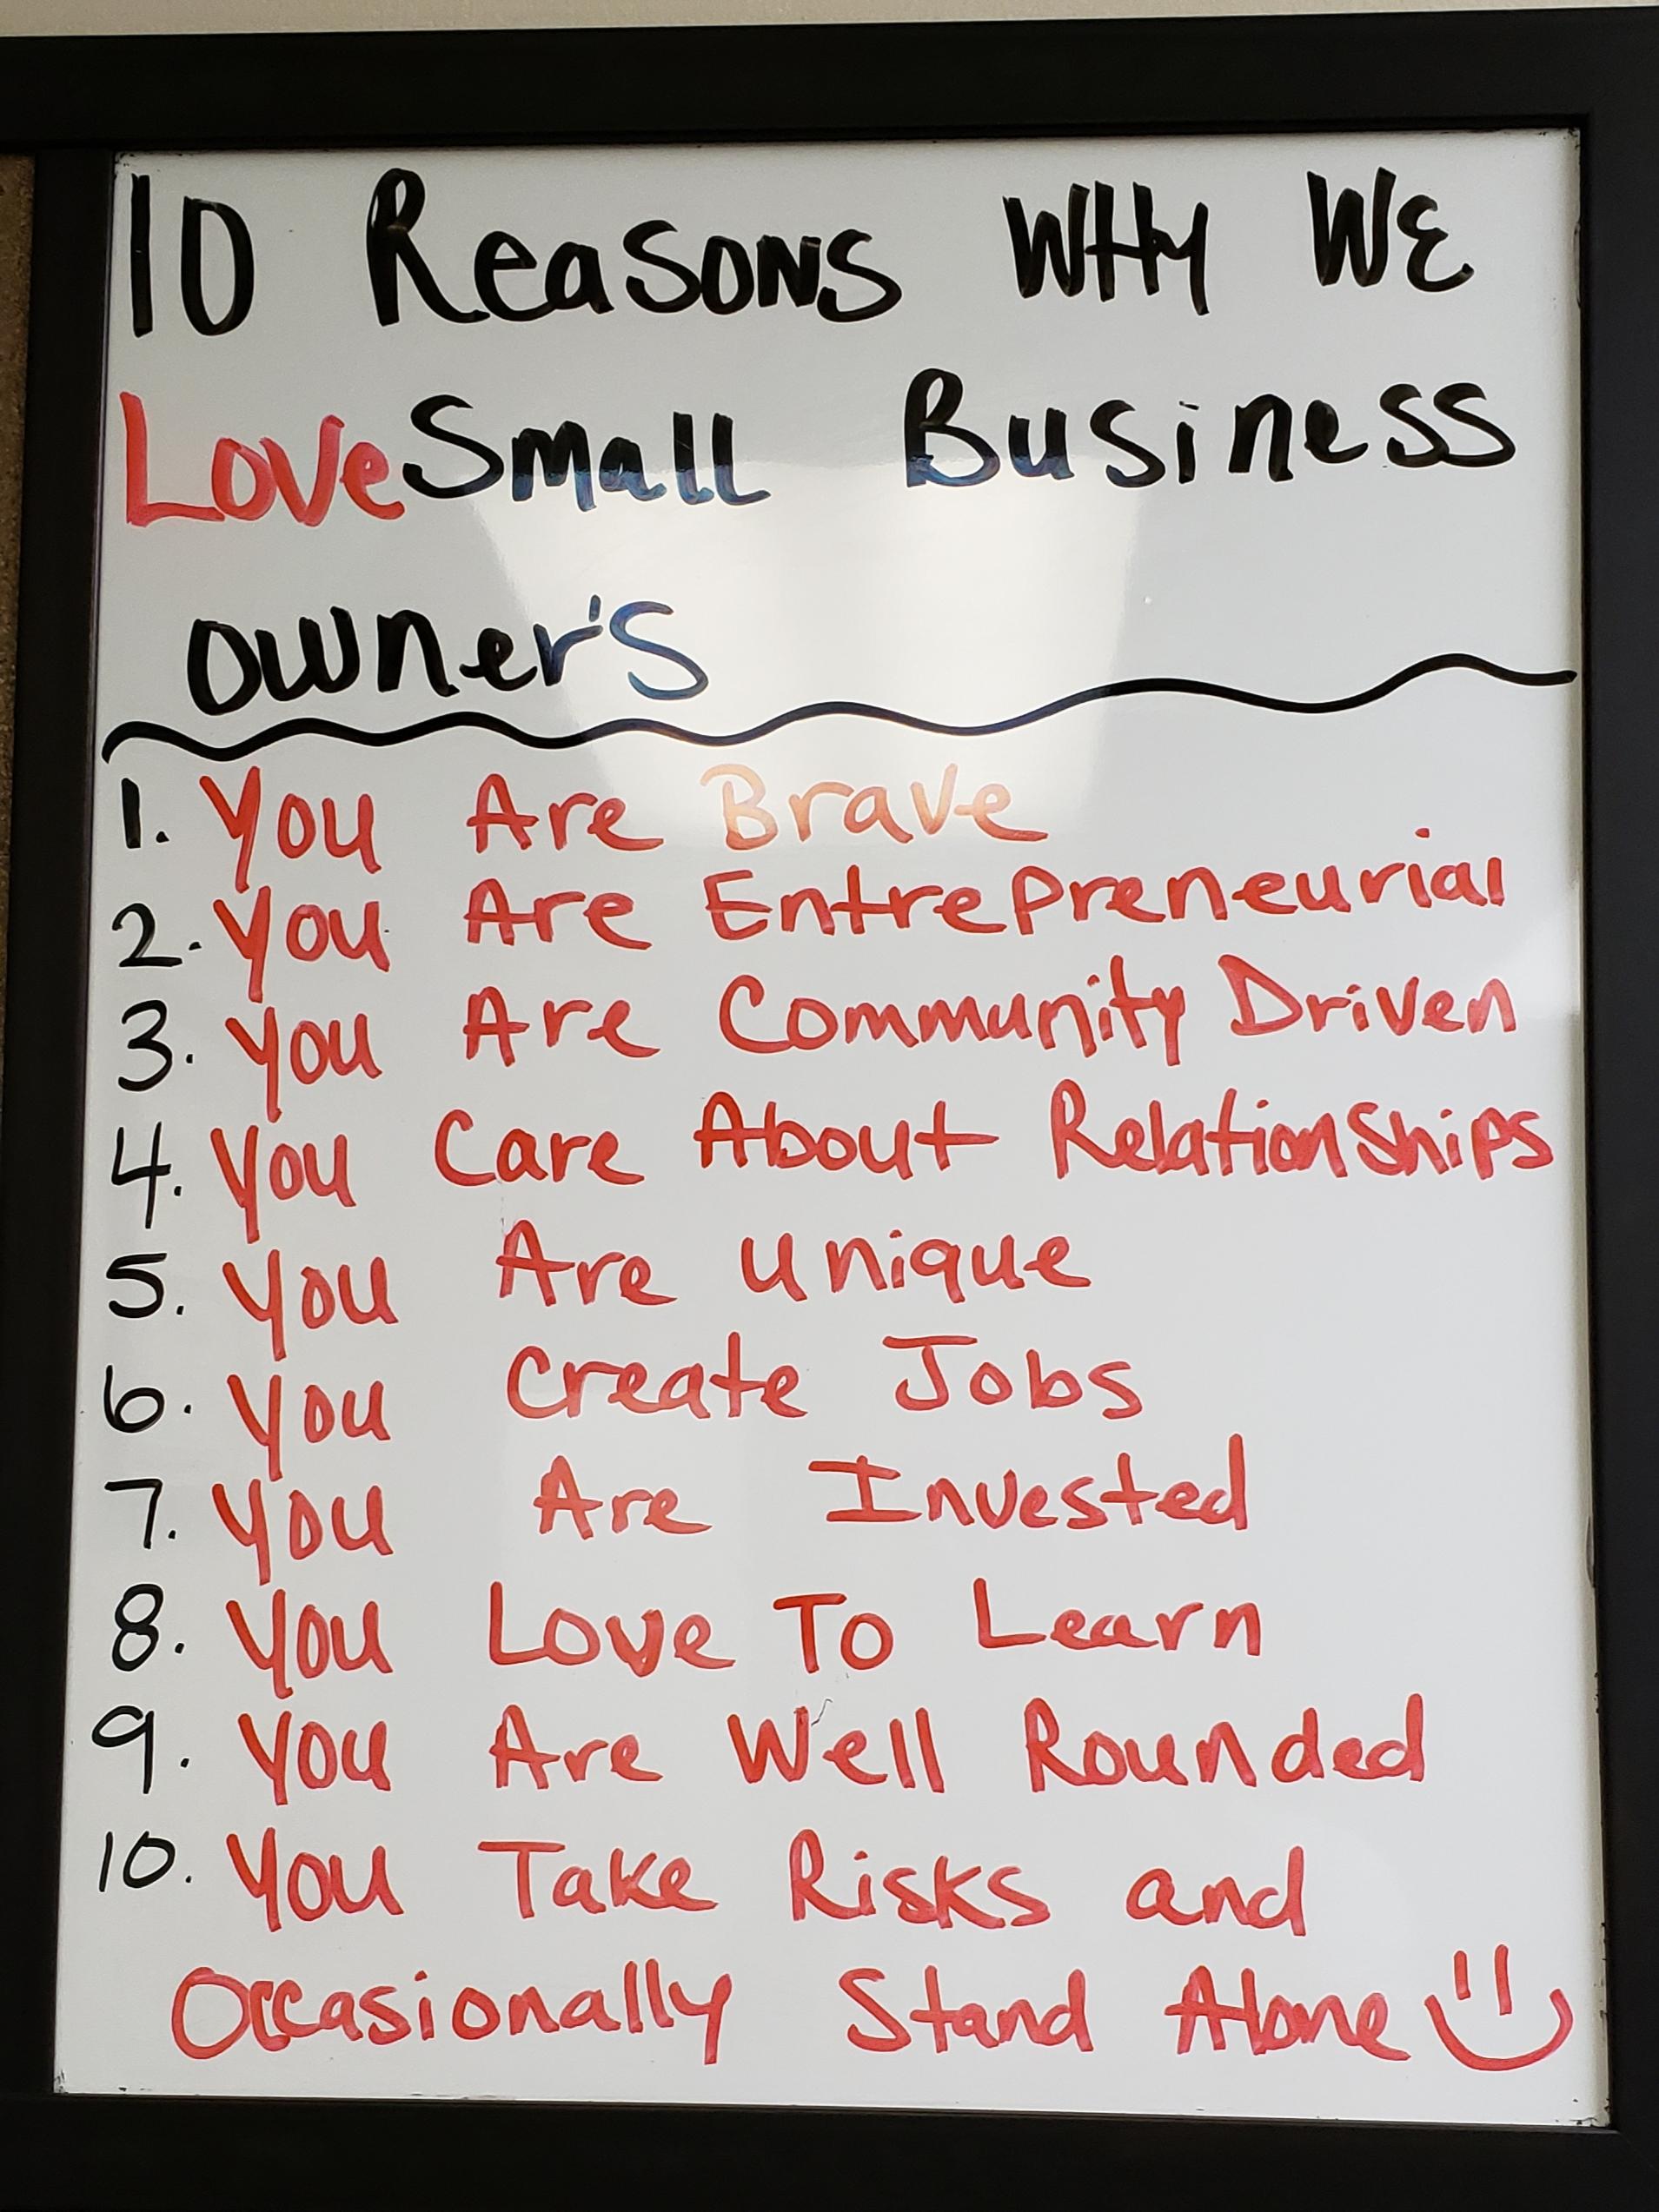 10 Reasons WHy WE
Love Small Business
owner's
1. You Are Brave
2. You Are Entrepreneurial
3. You Are Community Driven
4. You Care About Relationships
5. You Are unique
6. You Create Jobs
7. You Are Invested
8. You Love To Learn
9. You Are Well Rounded
10. You Take Risks and
Occasionally Stand Alone